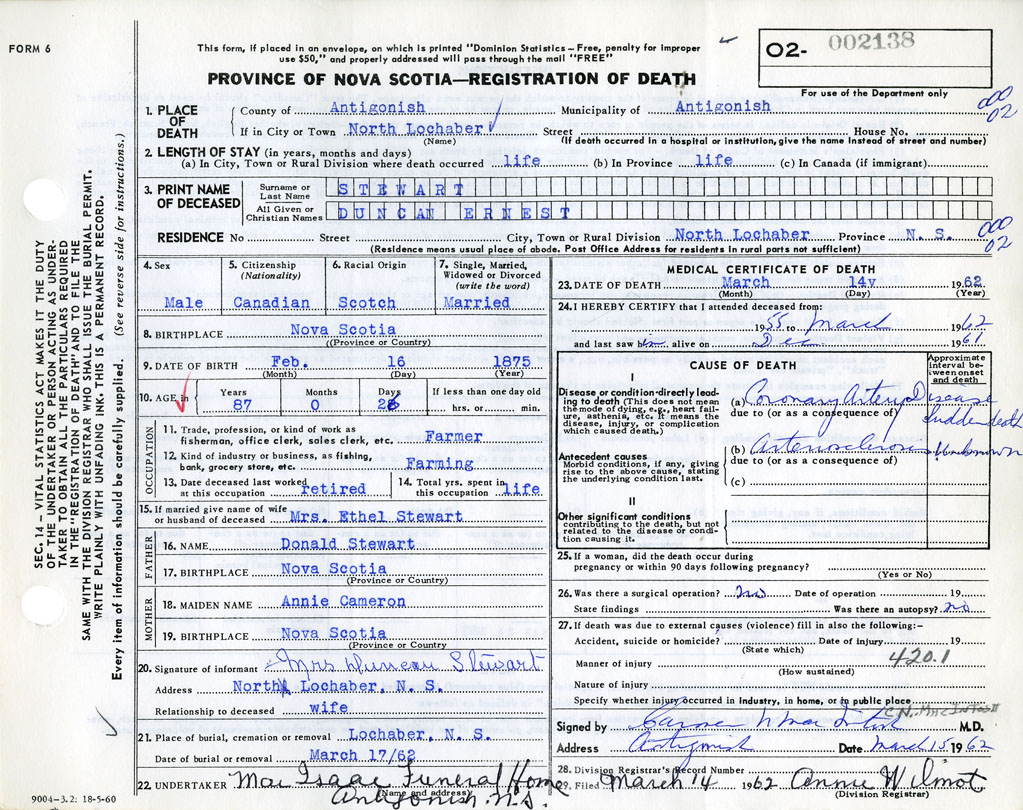 FORM 6
This form, if placed in an envelope, on which is printed "Dominion Statistics – Free, penalty for improper
use $50," and properly addressed will pass through the mail "FREE"
PROVINCE OF NOVA SCOTIA—REGISTRATION OF DEATH
O2- 002138
For use of the Department only
1. PLACE OF DEATH
County of Antigonish Municipality of Antigonish 000
If in City or Town North Lochaber Street House No. 02
(Name) (If death occurred in a hospital or institution, give the name instead of street and number)
2. LENGTH OF STAY (in years, months and days)
(a) In City, Town or Rural Division where death occurred life (b) In Province life (c) In Canada (if immigrant)
3. PRINT NAME OF DECEASED
Surname or Last Name STEWART
All Given or Christian Names DUNCAN ERNEST
RESIDENCE No Street City, Town or Rural Division North Lochaber Province N. S. 000
02
(Residence means usual place of abode. Post Office Address for residents in rural parts not sufficient)
4. Sex
Male
5. Citizenship
(Nationality)
Canadian
6. Racial Origin
Scotch
7. Single, Married,
Widowed or Divorced
(write the word)
Married
8. BIRTHPLACE Nova Scotia
(Province or Country)
9. DATE OF BIRTH Feb. 16 1875
(Month) (Day) (Year)
10. AGE in
Years Months Days If less than one day old
87 0 26 hrs. or min.
OCCUPATION
11. Trade, profession, or kind of work as
fisherman, office clerk, sales clerk, etc. Farmer
12. Kind of industry or business, as fishing,
bank, grocery store, etc. Farming
13. Date deceased last worked
at this occupation retired
14. Total yrs. spent in
this occupation life
15. If married give name of wife
or husband of deceased Mrs. Ethel Stewart
FATHER
16. NAME Donald Stewart
17. BIRTHPLACE Nova Scotia
(Province or Country)
MOTHER
18. MAIDEN NAME Annie Cameron
19. BIRTHPLACE Nova Scotia
(Province or Country
20. Signature of informant Mrs Duncan Stewart
Address North Lochaber, N. S.
Relationship to deceased wife
21. Place of burial, cremation or removal Lochaber, N. S.
Date of burial or removal March 17/62
22. UNDERTAKER Mac Isaac Funeral Home
(Name and address)
Antigonish. N.S.
MEDICAL CERTIFICATE OF DEATH
23. DATE OF DEATH March 14 1962
(Month) (Day) (Year)
24. I HEREBY CERTIFY that I attended deceased from:
1955 to March 1962
and last saw him alive on Dec 1961
CAUSE OF DEATH
Approximate
interval be-
tween onset
and death
I
Disease or condition directly lead-
ing to death (This does not mean
the mode of dying, e.g., heart fail-
ure, asthenia, etc. It means the
disease, injury, or complication
which caused death.)
(a) Coronary Artery Disease
due to (or as a consequence of) Sudden death
Antecedent causes
Morbid conditions, if any, giving
rise to the above cause, stating
the underlying condition last.
(b) Arteriosclerosis Unknown
due to (or as a consequence of)
(c)
II
Other significant conditions
contributing to the death, but not
related to the disease or condi-
tion causing it.
25. If a woman, did the death occur during
pregnancy or within 90 days following pregnancy?
(Yes or No)
26. Was there a surgical operation? no Date of operation 19
State findings Was there an autopsy? no
27. If death was due to external causes (violence) fill in also the following:-
Accident, suicide or homicide? Date of injury 19
(State which)
420.1
Manner of injury
(How sustained)
Nature of injury
Specify whether injury occurred in Industry, in home, or in public place
C.N. MACINTOSH
Signed by M.D.
Address Antigonish Date March 15 1962
28. Division Registrar's Record Number
29. Filed March 14 1962 Annie Wilmot
(Division Registrar)
SEC. 14 – VITAL STATISTICS ACT MAKES IT THE DUTY
OF THE UNDERTAKER OR PERSON ACTING AS UNDER-
TAKER TO OBTAIN ALL THE PARTICULARS REQUIRED
IN THE "REGISTRATION OF DEATH" AND TO FILE THE
SAME WITH THE DIVISION REGISTRAR WHO SHALL ISSUE THE BURIAL PERMIT.
WRITE PLAINLY WITH UNFADING INK. THIS IS A PERMANENT RECORD.
Every item of information should be carefully supplied. (See reverse side for instructions.)
9004-3.2: 18-5-60